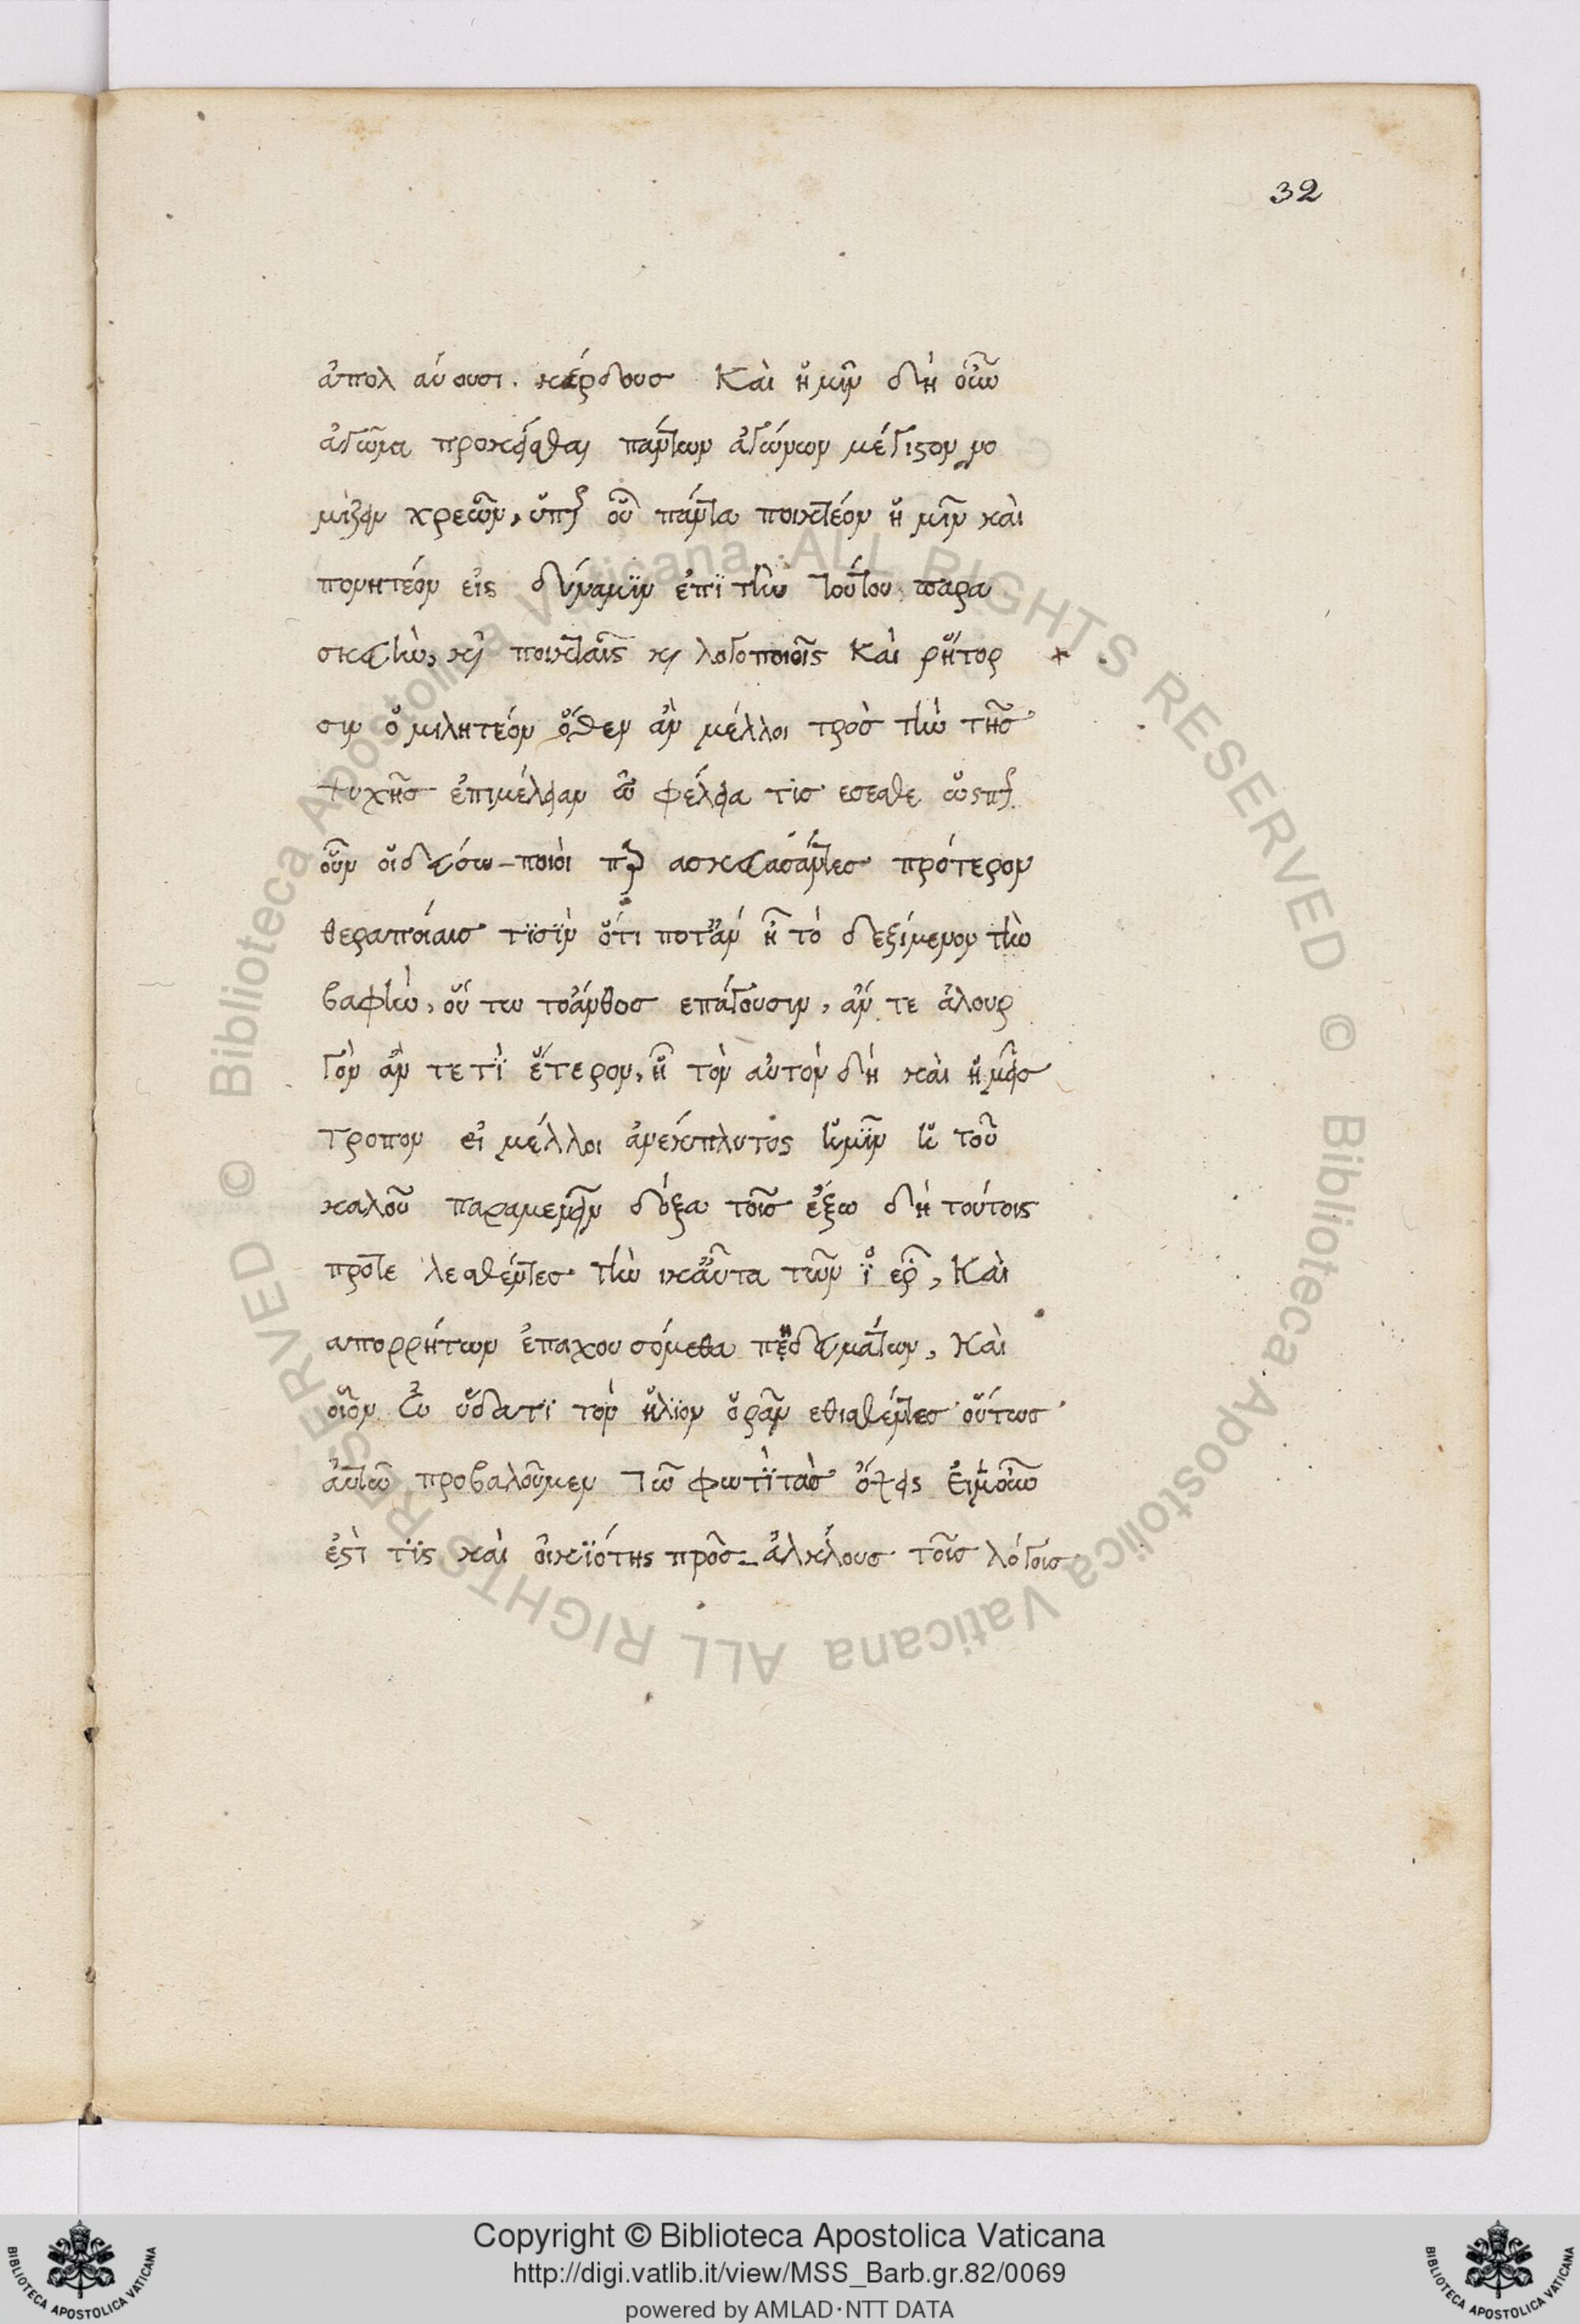 32
ἀπολ αύουσι. κέρδουσ Καὶ ἥμῖν δὴ οὖν
ἀγῶνα προκεῖσθαι πάντων ἀγώνων μέγιστον νο
μίζειν χρεῶν, ὕπερ οὗ πάντα ποιητέον ἥ μῖν καὶ
πονητέον εἰς δύναμϊν ἐπϊ τὴν τούτου παρα
σκευὴν, κὶ ποιηταῖς κὶ λογοποιοῖς Καὶ ρήτορ
σιν ὅ μιλητέον ὅθεν ἂν μέλλοι προσ τὴν τῆσ
ψυχῆσ ἐπιμέλειαν ὠ φέλεια τὶσ εσεσθε ὥσπερ
οὖν οἵ δευσο-ποιὸι παρ ασκευασάντεσ πρότερον
θεραποίαισ τϊσϊν ὅτι ποτἂν ἦ τὸ δεξόμενον τὴν
βαφὴν, οὕ τω τοἄνθοσ επάγουσιν, ἄν τε ἁλουρ
γὸν ἄν τε τϊ ἕτερον, ἧ τὸν αὐτὸν δὴ καὶ ἥμεῖσ
τροπον εἰ μέλλοι ἀνέκπλυτος ἥμῖν ἥ τοῦ
καλοῦ παραμενεῖν δόξα τοῖσ ἔξω δὴ τούτοις
προτε λεσθέντεσ τὴν ικαῦτα τῶν ϊ ερῶν, Καὶ
απορρήτων ἐπακου σόμεθα παιδευμάτων, Καὶ
οἷον ἐν ὕδατϊ τὸν ἥλϊον ὅρᾶν εθισθέντεσ οὕτωσ
ἀυτῶ προβαλοῦμεν τῶ φωτϊ τασ ὄψεις Εἰμὲν οὖν
ἐστὶ τϊς καὶ οἰκϊότης πρὸσ-ἀλλήλουσ τοῖσ λόγοισ
Copyright © Biblioteca Apostolica Vaticana
http://digi.vatlib.it/view/MSS_Barb.gr.82/0069
powered by AMLAD·NTT DATA
© Biblioteca Apostolica Vaticana ALL RIGHTS RESERVED
© Biblioteca Apostolica Vaticana ALL RIGHTS RESERVED
BIBLIOTECA APOSTOLICA VATICANA
BIBLIOTECA APOSTOLICA VATICANA